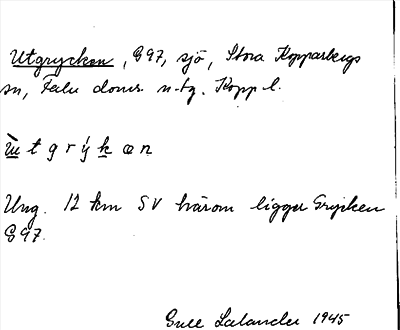 Utgrycken, 897, sjö, Stora Kopparbergs
sn, Falu doms. n. tg. Kopp l.
ù t g r ý k ə n
Ung. 12 km SV härom ligger Grycken
897.
Gull Lalander 1945